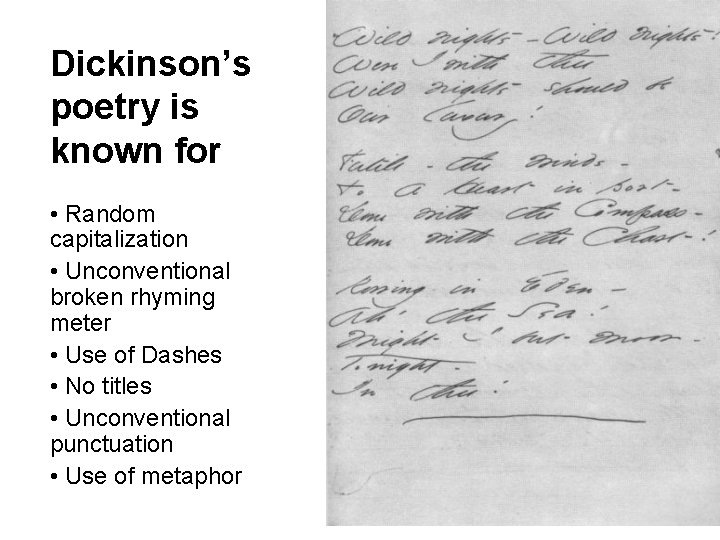 Dickinson's
poetry is
known for
• Random
capitalization
• Unconventional
broken rhyming
meter
• Use of Dashes
• No titles
• Unconventional
punctuation
• Use of metaphor
Wild nights - Wild nights!
Were I with thee
Wild nights should be
Our luxury!
Futile - the winds -
To a Heart in port -
Done with the Compass -
Done with the Chart!
Rowing in Eden -
Ah! the Sea!
Might I but moor -
Tonight -
In thee!